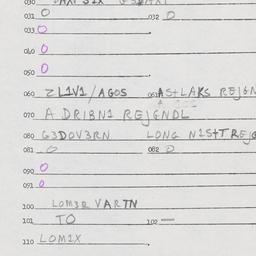 030
031 O 032 O
033 O
040 O
050 O
060 ZL1V1/AGOS 061 AS+LAKS REJGN
070 A DRIBN1 REJGNDL
080 G3DOV3RN LONG N1S+TREJG
081 O 082 O
090 O
091 O
100 LOM3R VARTN
101 TO 102 —
110 LOM1X